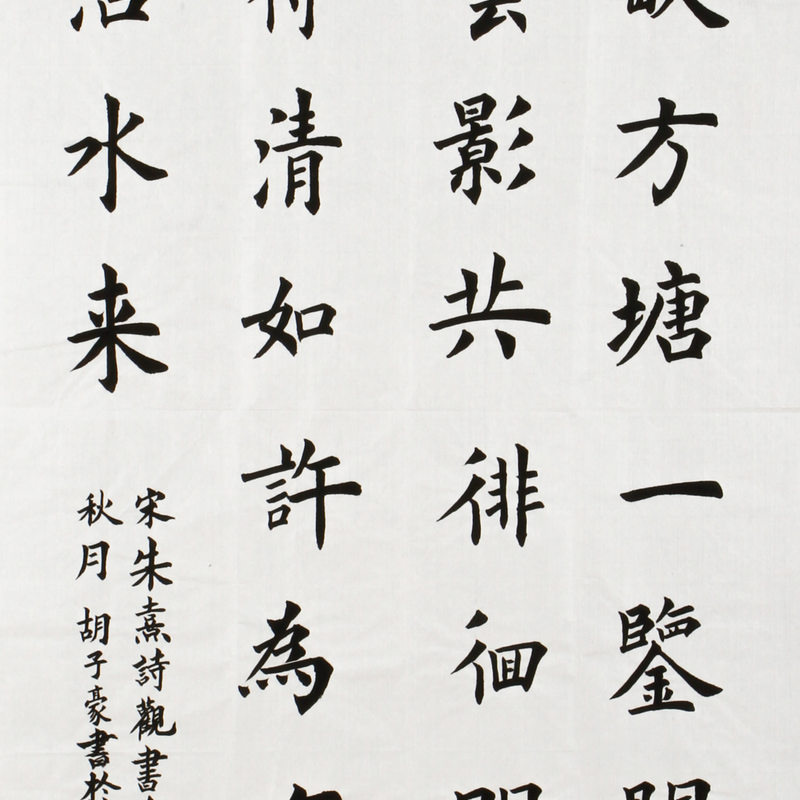 方塘一鑒
影共徘徊
清如許為
水来
宋朱熹詩觀書
秋月胡子豪書於